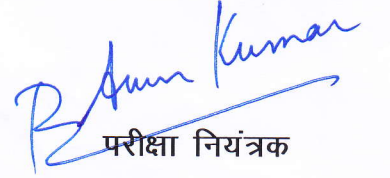 R Arun Kumar
परीक्षा नियंत्रक